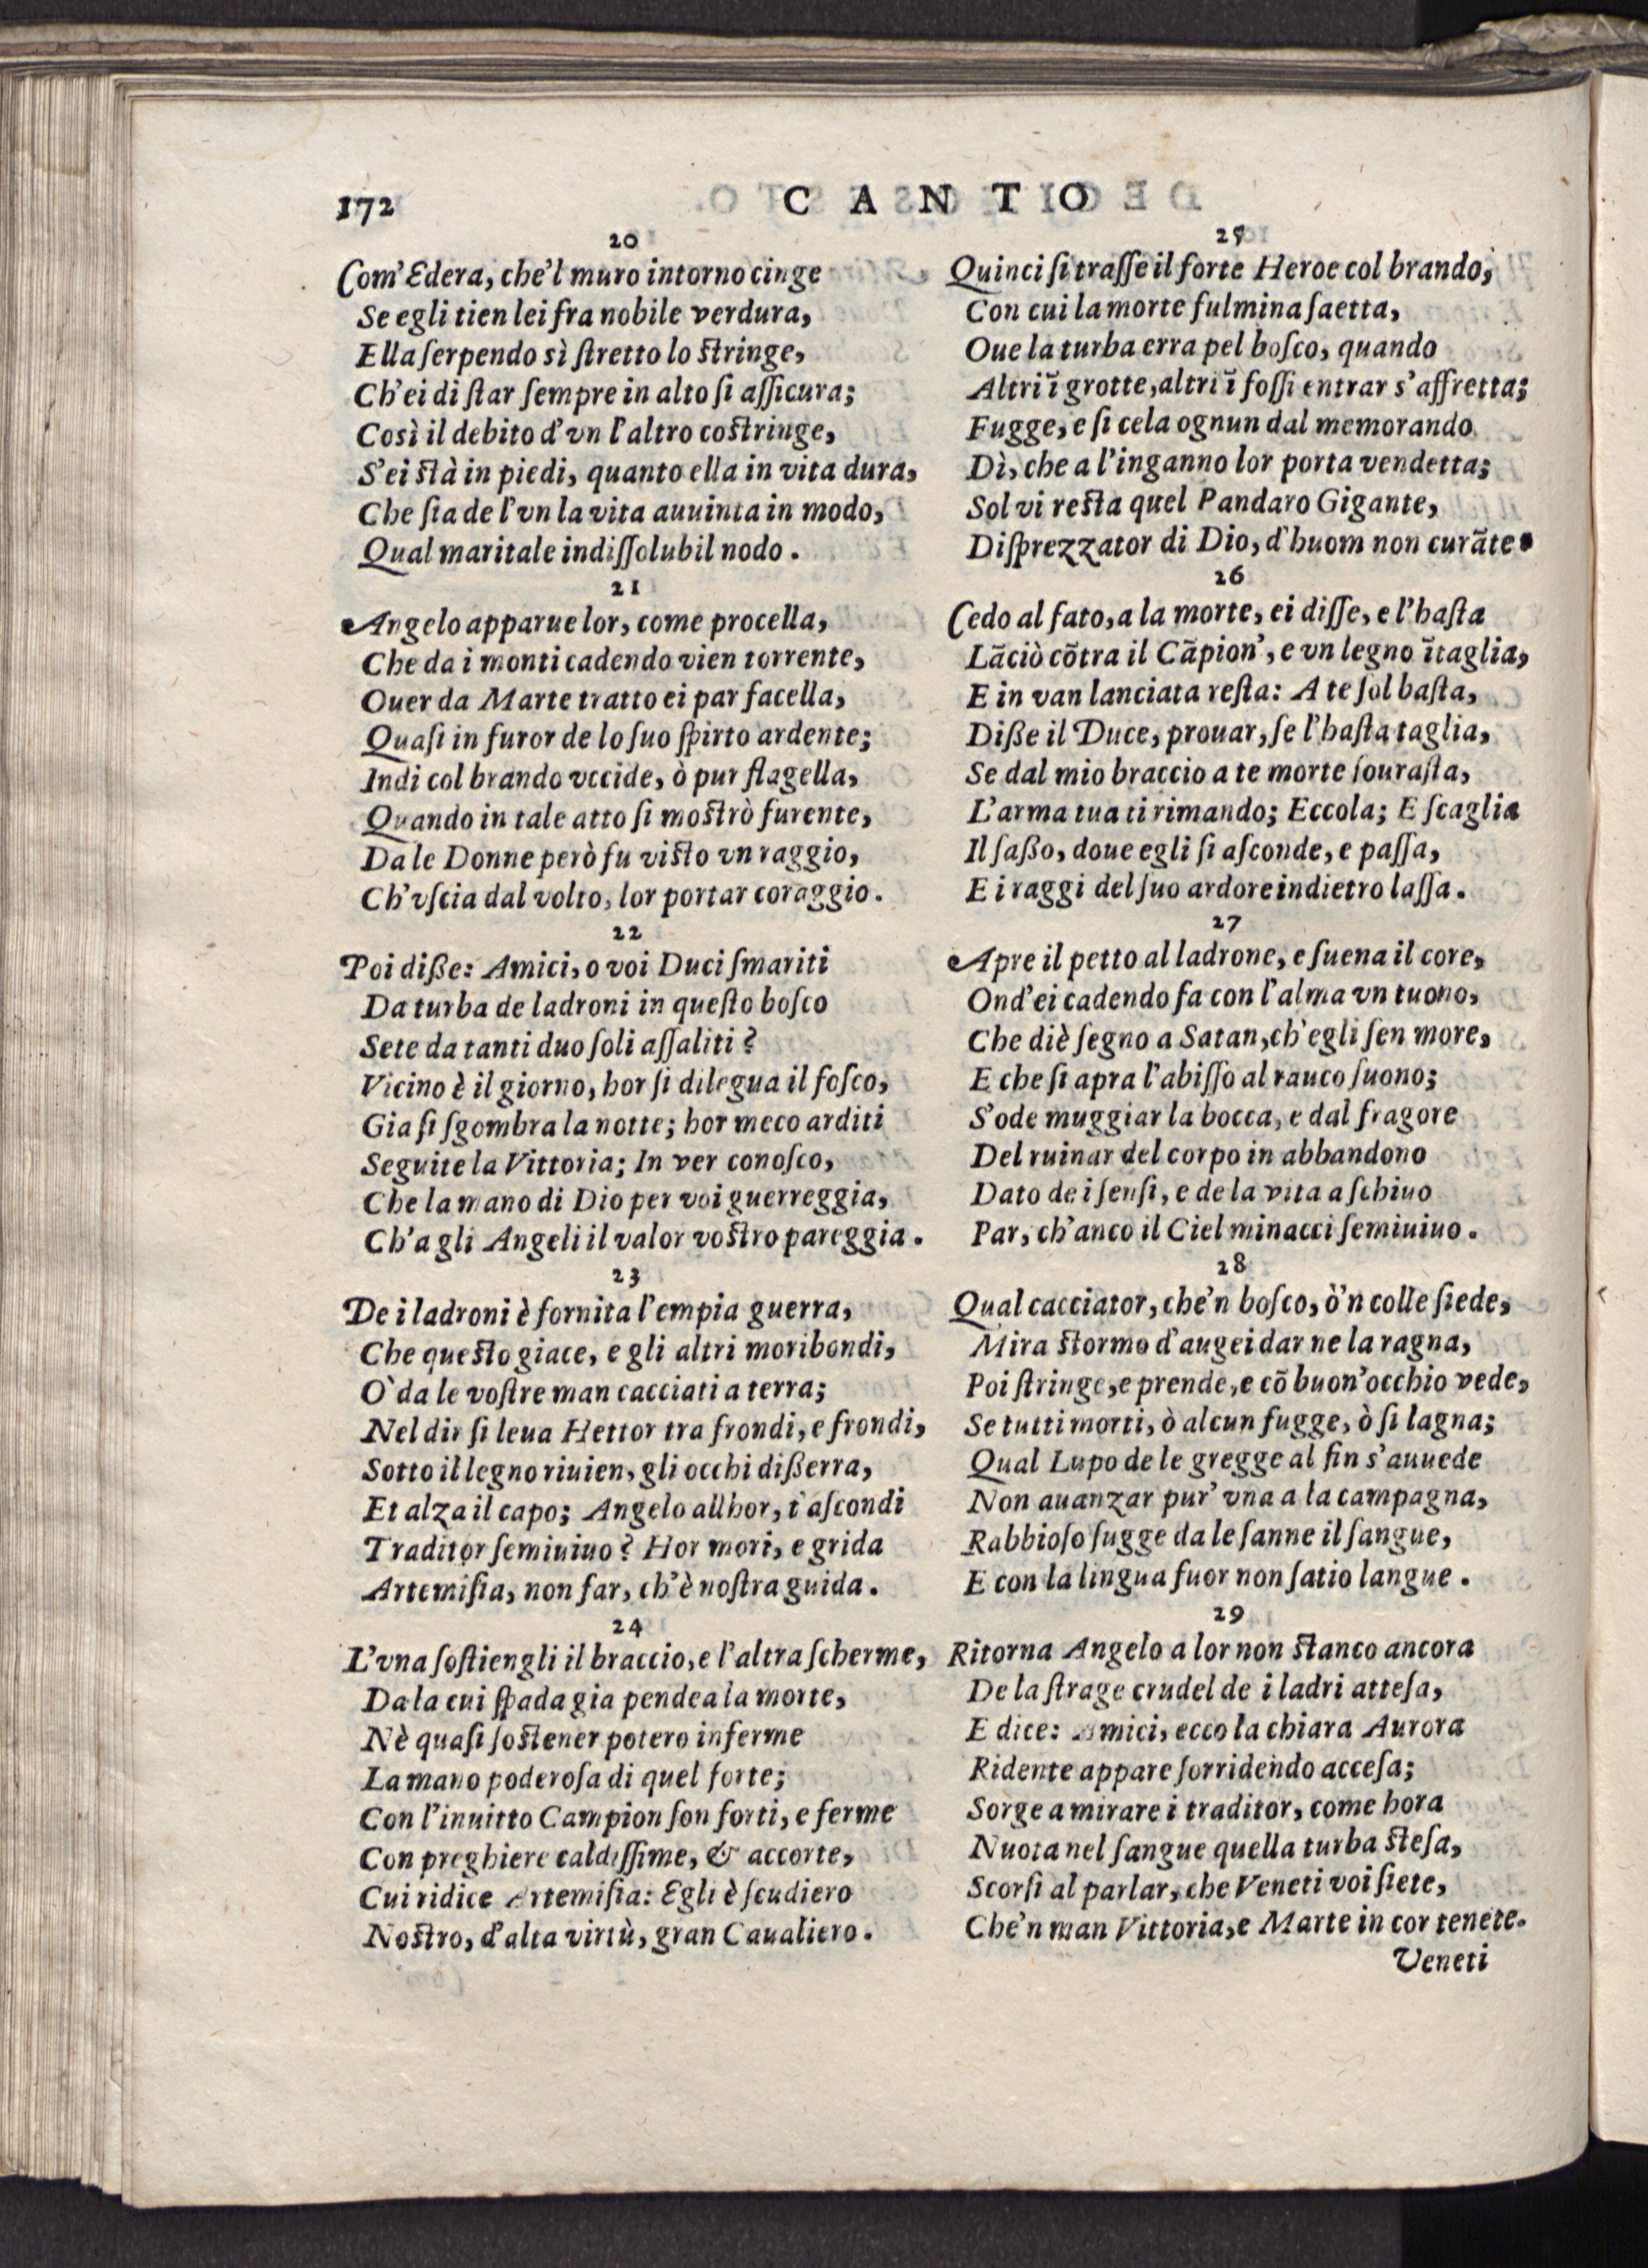 172
CANTO
20
Com'Edera, che'l muro intorno cinge
Se egli tien lei fra nobile verdura,
Ella ſerpendo sì ſtretto lo ſtringe,
Ch'ei di ſtar ſempre in alto ſi aſſicura;
Così il debito d'vn l'altro coſtringe,
S'ei ſtà in piedi, quanto ella in vita dura,
Che ſia de l'vn la vita auuinta in modo,
Qual maritale indiſſolubil nodo.
21
Angelo apparue lor, come procella,
Che da i monti cadendo vien torrente,
Ouer da Marte tratto ei par facella,
Quaſi in furor de lo ſuo ſpirto ardente;
Indi col brando vccide, ò pur flagella,
Quando in tale atto ſi moſtrò furente,
Da le Donne però fu viſto vn raggio,
Ch'vſcia dal volto, lor portar coraggio.
22
Poi diße: Amici, o voi Duci ſmariti
Da turba de ladroni in queſto boſco
Sete da tanti duo ſoli aſſaliti?
Vicino è il giorno, hor ſi dilegua il foſco,
Gia ſi ſgombra la notte; hor meco arditi
Seguite la Vittoria; In ver conoſco,
Che la mano di Dio per voi guerreggia,
Ch'a gli Angeli il valor voſtro pareggia.
23
De i ladroni è fornita l'empia guerra,
Che queſto giace, e gli altri moribondi,
O' da le voſtre man cacciati a terra;
Nel dir ſi leua Hettor tra frondi, e frondi,
Sotto il legno riuien, gli occhi dißerra,
Et alza il capo; Angelo allhor, t'aſcondi
Traditor ſemiuiuo? Hor mori, e grida
Artemiſia, non far, ch'è noſtra guida.
24
L'vna ſoſtiengli il braccio, e l'altra ſcherme,
Da la cui ſpada gia pendea la morte,
Nè quaſi ſoſtener potero inferme
La mano poderoſa di quel forte;
Con l'inuitto Campion ſon forti, e ferme
Con preghiere caldiſſime, & accorte,
Cui ridice Artemiſia: Egli è ſcudiero
Noſtro, d'alta virtù, gran Caualiero.
25
Quinci ſi traſſe il forte Heroe col brando,
Con cui la morte fulmina ſaetta,
Oue la turba erra pel boſco, quando
Altri ĩ grotte, altri ĩ foſſi entrar s'affretta;
Fugge, e ſi cela ognun dal memorando
Dì, che a l'inganno lor porta vendetta;
Sol vi reſta quel Pandaro Gigante,
Diſprezzator di Dio, d'huom non curãte.
26
Cedo al fato, a la morte, ei diſſe, e l'haſta
Lãciò cõtra il Cãpion', e vn legno ĩtaglia,
E in van lanciata reſta: A te ſol baſta,
Diße il Duce, prouar, ſe l'haſta taglia,
Se dal mio braccio a te morte ſouraſta,
L'arma tua ti rimando; Eccola; E ſcaglia
Il ſaßo, doue egli ſi aſconde, e paſſa,
E i raggi del ſuo ardore indietro laſſa.
27
Apre il petto al ladrone, e ſuena il core,
Ond'ei cadendo fa con l'alma vn tuono,
Che diè ſegno a Satan, ch'egli ſen more,
E che ſi apra l'abiſſo al rauco ſuono;
S'ode muggiar la bocca, e dal fragore
Del ruinar del corpo in abbandono
Dato de i ſenſi, e de la vita a ſchiuo
Par, ch'anco il Ciel minacci ſemiuiuo.
28
Qual cacciator, che'n boſco, ò'n colle ſiede,
Mira ſtormo d'augei dar ne la ragna,
Poi ſtringe, e prende, e cõ buon'occhio vede,
Se tutti morti, ò alcun fugge, ò ſi lagna;
Qual Lupo de le gregge al fin s'auuede
Non auanzar pur' vna a la campagna,
Rabbioſo ſugge da le ſanne il ſangue,
E con la lingua fuor non ſatio langue.
29
Ritorna Angelo a lor non ſtanco ancora
De la ſtrage crudel de i ladri atteſa,
E dice: Amici, ecco la chiara Aurora
Ridente appare ſorridendo acceſa;
Sorge a mirare i traditor, come hora
Nuota nel ſangue quella turba ſteſa,
Scorſi al parlar, che Veneti voi ſiete,
Che'n man Vittoria, e Marte in cor tenete.
Veneti